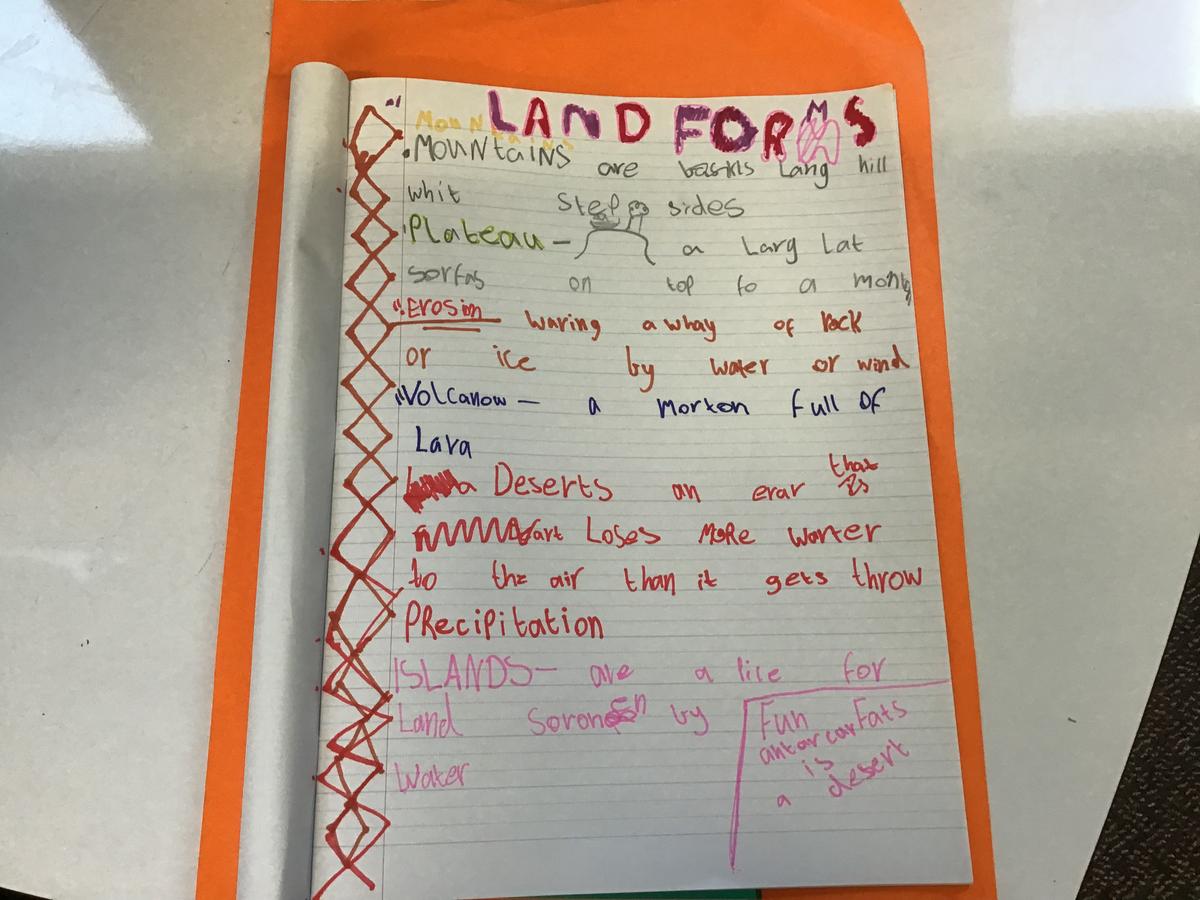 LAND FORMS
Mountains
Mountains are baskls Lang hill
whit Step sides
Plateau — a Larg Lat
sorfas on top fo a monty
Erosion waring a whay of rock
or ice by water or wind
Volcanow — a morton full of
Lava
a Deserts an erar that is
art Loses More warter
to the air than it gets throw
Precipitation
ISLANDS — are a lite for
Land soronen by
Water
Fun Fats
antarcar
is
a desert